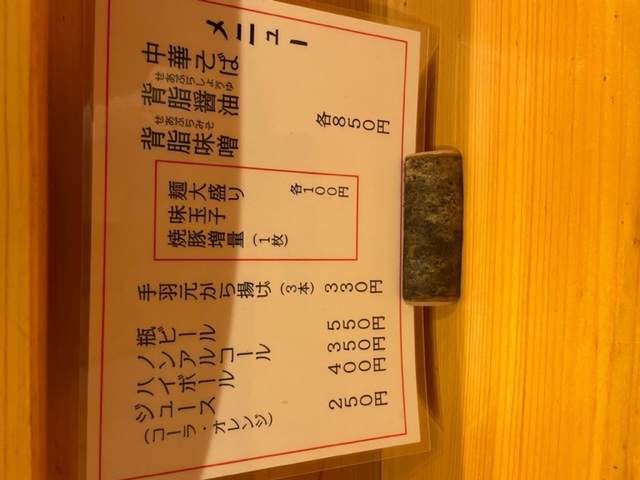 メニュー
中華そば
せあぶらしょうゆ
背脂醤油
せあぶらみそ
背脂味噌
各850円
麺大盛り
味玉子
焼豚増量(1枚)
各100円
手羽元から揚げ(3本) 330円
瓶ビール 550円
ノンアルコール 350円
ハイボール 400円
ジュース 250円
(コーラ・オレンジ)